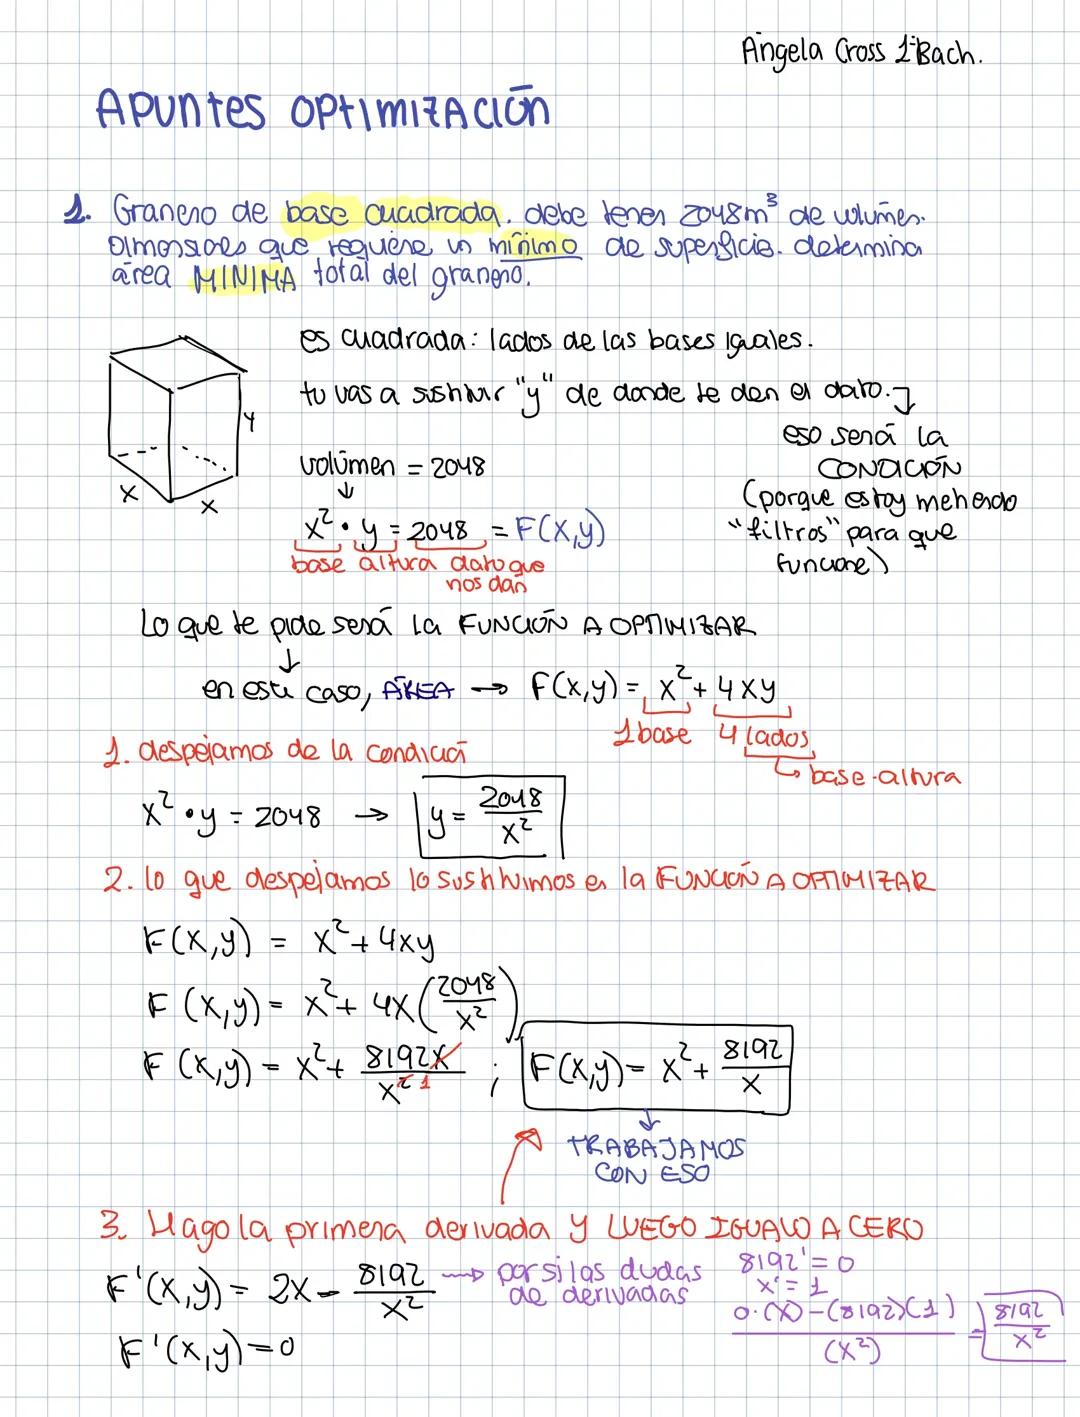 Ángela Cross 1ºBach.
APUNTES OPTIMIZACIÓN
1. Granero de base cuadrada. debe tener 2048m³ de volumen.
Dimensiones que requiere un mínimo de superficie. determina
área MINIMA total del granero.
es cuadrada: lados de las bases iguales.
tu vas a sustituir "y" de donde te den el dato.
eso será la
CONDICIÓN
(porque estoy metiendo
"filtros" para que
funcione)
y
x
x
volúmen = 2048
↓
x² • y = 2048 = F(x,y)
base altura dato que
nos dan
Lo que te pide será la FUNCIÓN A OPTIMIZAR
↓
en este caso, ÁREA → F(x,y) = x² + 4xy
1 base 4 lados
↳ base·altura
1. despejamos de la condición
x² • y = 2048 → y = 2048/x²
2. lo que despejamos lo sustituimos en la FUNCIÓN A OPTIMIZAR
F(x,y) = x² + 4xy
F(x,y) = x² + 4x(2048/x²)
F(x,y) = x² + 8192x/x² 1 ; F(x,y) = x² + 8192/x
↓
TRABAJAMOS
CON ESO
3. Hago la primera derivada y LUEGO IGUALO A CERO
F'(x,y) = 2x - 8192/x² → por si las dudas
de derivadas
8192' = 0
x' = 1
0·(x)-(8192)(1)/(x²) = 8192/x²
F'(x,y)=0